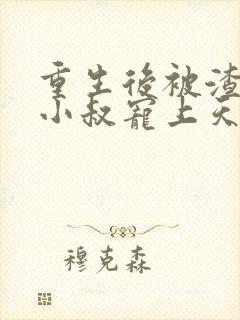 重生后被渣
小叔寵上天
穆克森